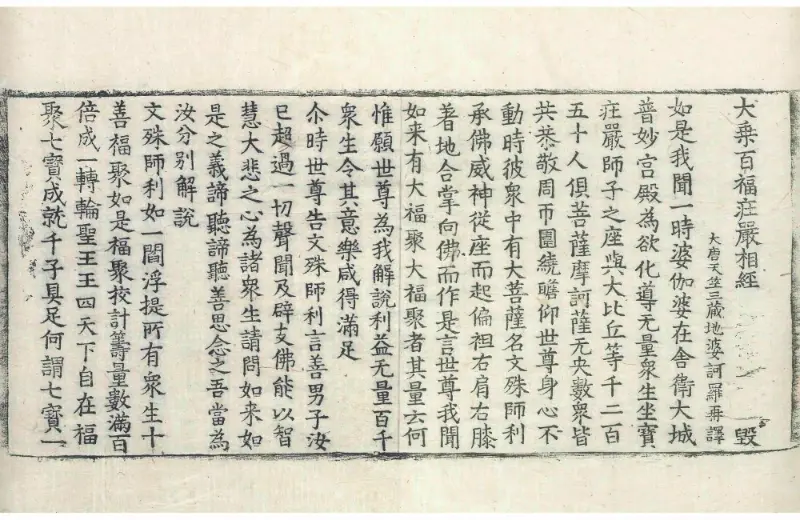 大乗百福庄嚴相經 毀
大唐天竺三蔵地婆訶羅再譯
如是我聞一時婆伽婆在舍衛大城
普妙宮殿為欲化導无量衆生坐寶
庄嚴師子之座與大比丘等千二百
五十人俱菩薩摩訶薩无央數衆皆
共恭敬周帀圍繞瞻仰世尊身心不
動時彼衆中有大菩薩名文殊師利
承佛威神從座而起偏袒右肩右膝
著地合掌向佛而作是言世尊我聞
如来有大福聚大福聚者其量云何
惟願世尊為我解說利益无量百千
衆生令其意樂咸得滿足
尒時世尊告文殊師利言善男子汝
已超過一切聲聞及辟支佛能以智
慧大悲之心為諸衆生請問如来如
是之義諦聽諦聽善思念之吾當為
汝分別解說
文殊師利如一閻浮提所有衆生十
善福聚如是福聚挍計籌量數滿百
倍成一轉輪聖王王四天下自在福
聚七寶成就千子具足何謂七寶一